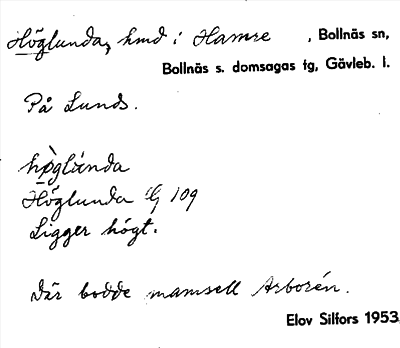 Höglunda, hmd i Hamre , Bollnäs sn,
Bollnäs s. domsagas tg, Gävleb. l.
På Lunds.
hø̀glánda
Höglunda EJ 109
Ligger högt.
Där bodde mamsell Arborén.
Elov Silfors 1953